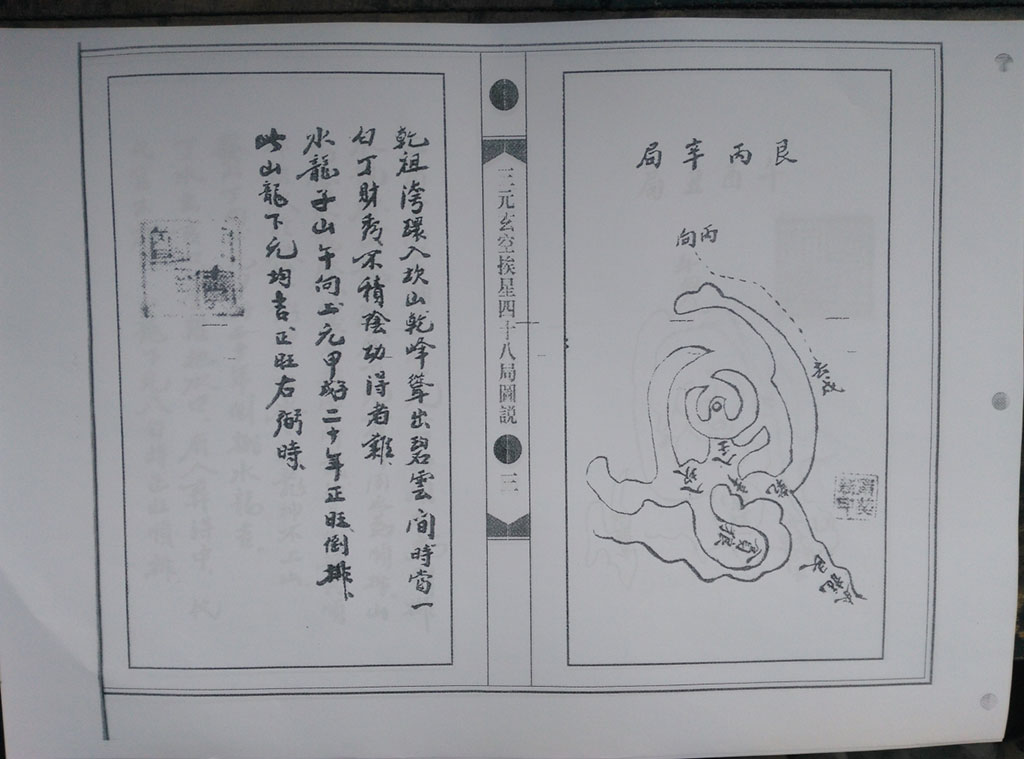 艮丙辛局
丙向
三元玄空挨星四十八局圖説
三
乾祖湾環入坎山乾峰聳出碧雲間時當一
白丁財秀不積陰功得者難
水龍子山午向上元甲二十年正旺倒排
此山龍下元均吉正旺右弼時